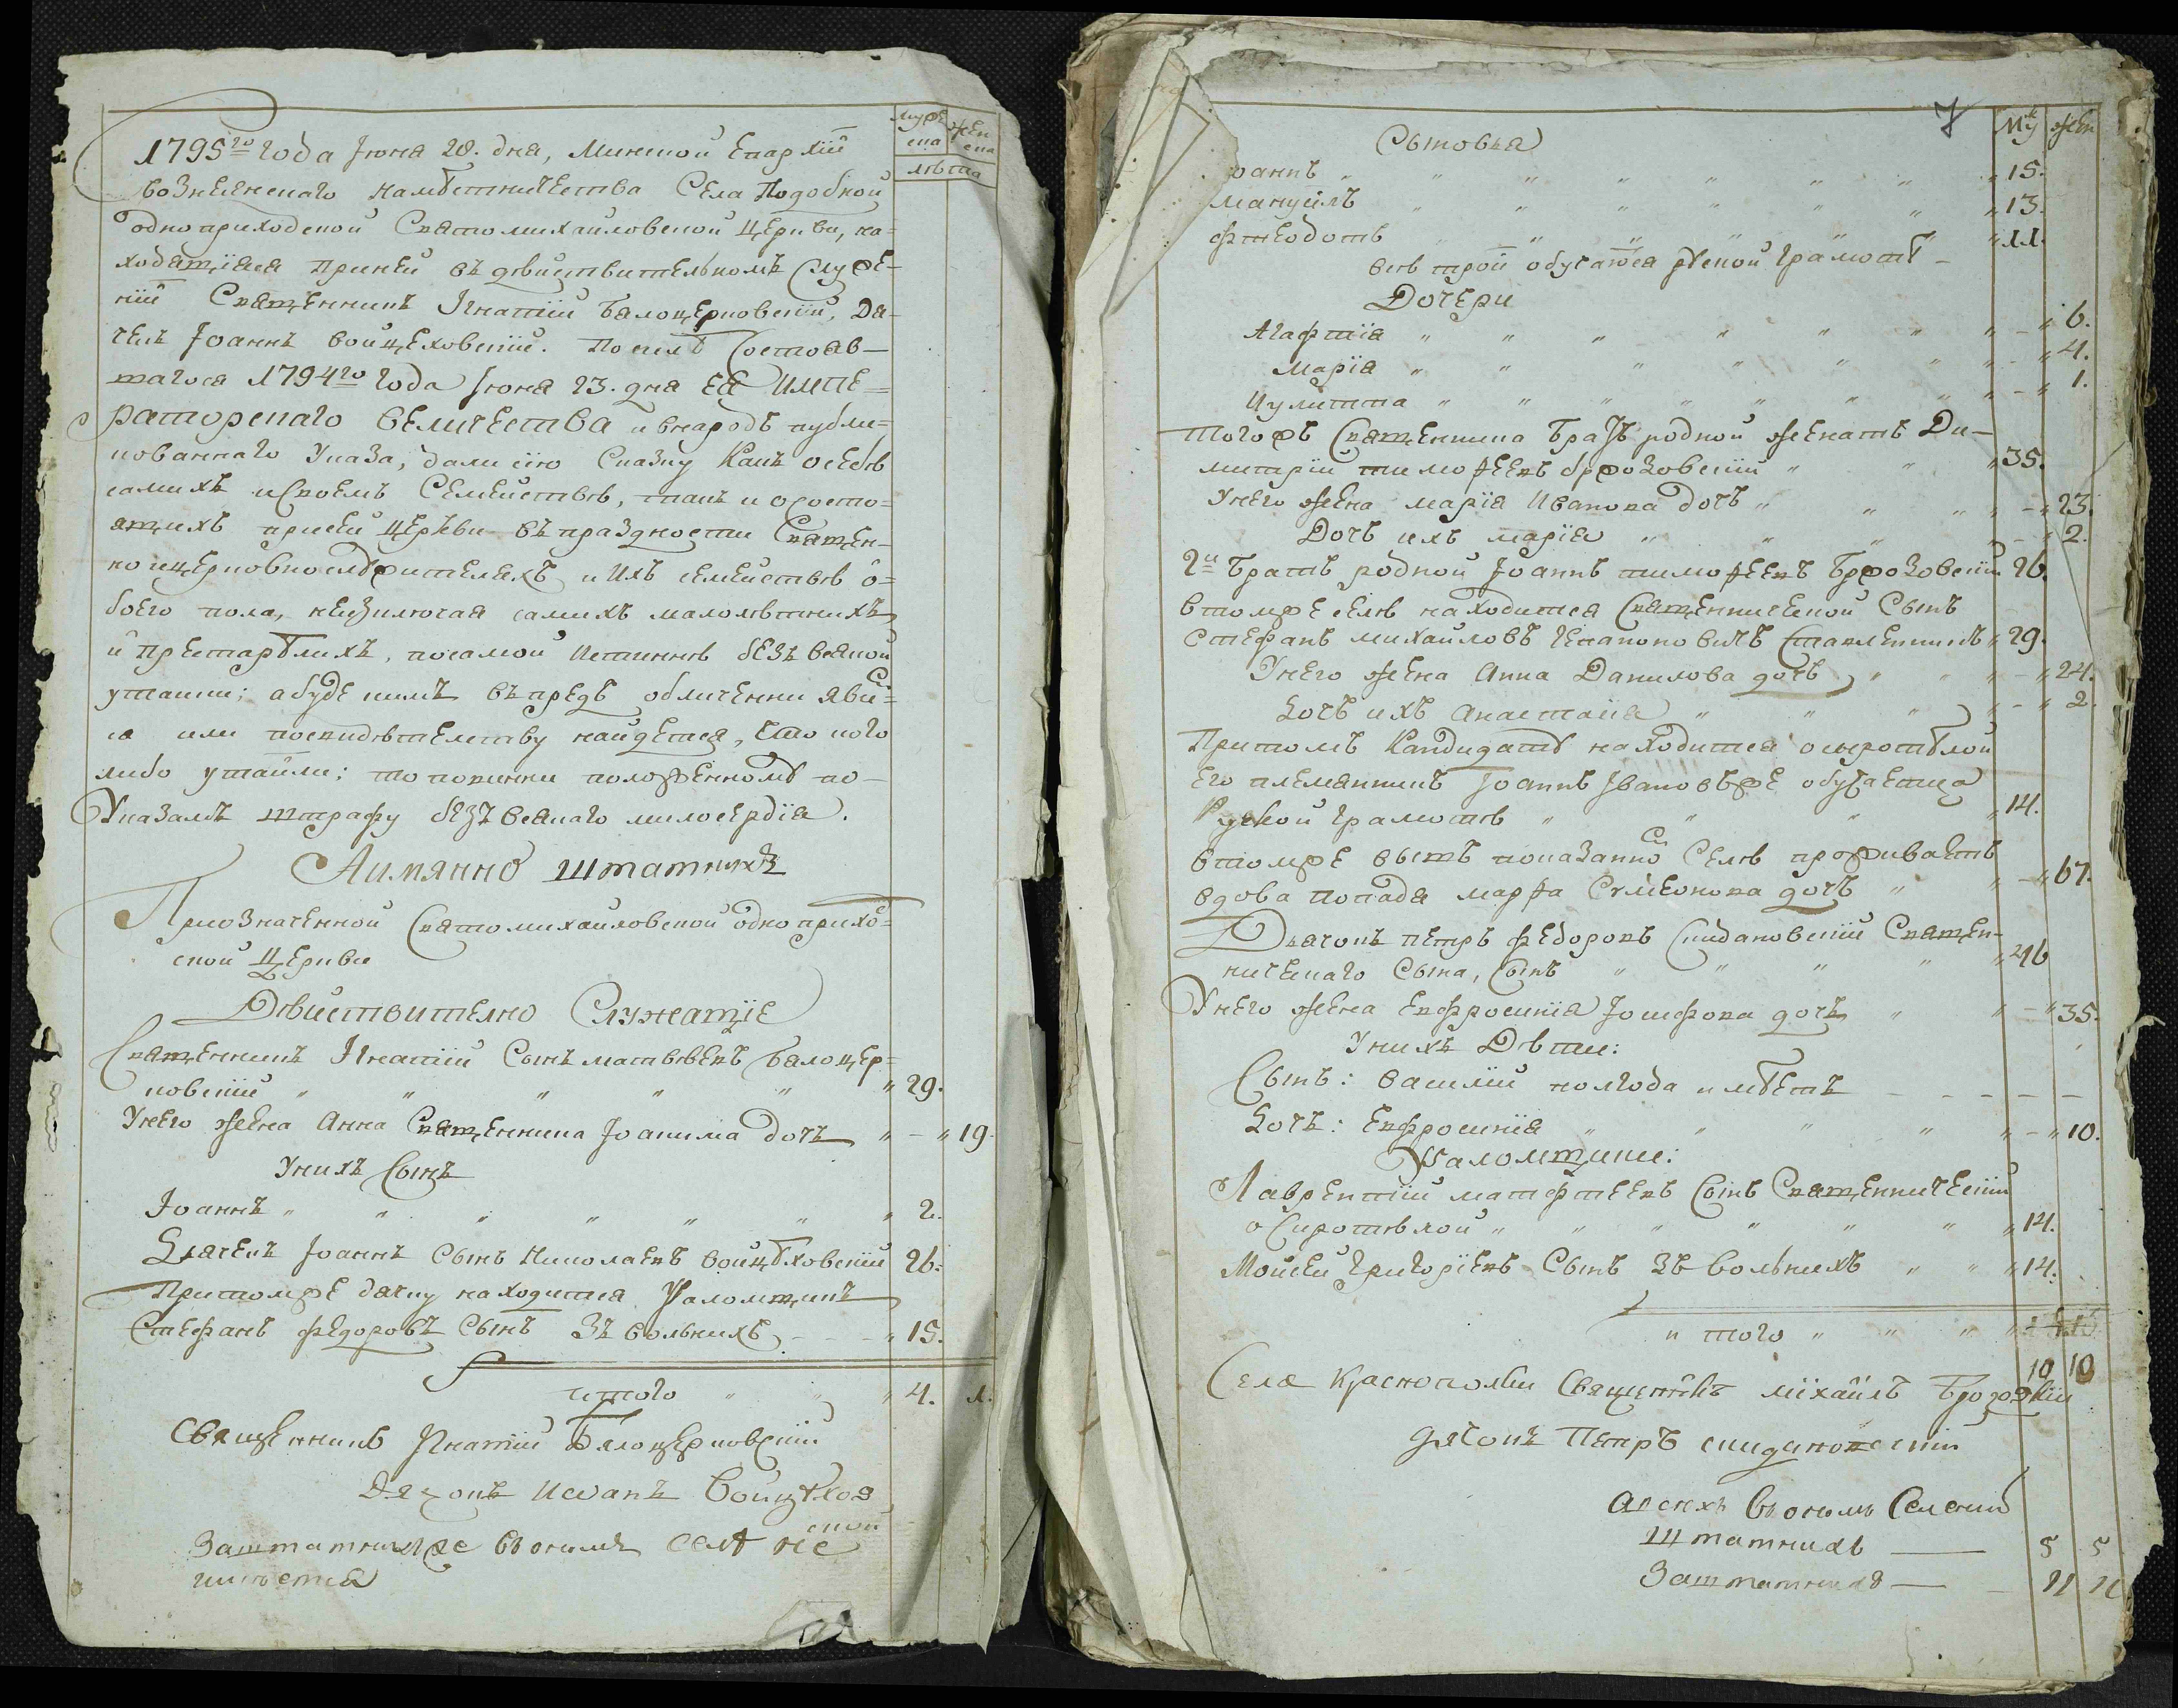 муже
ска
жен
ска
лѣта
1795го года Іюня 28. дня, Минской Епархіи
вознесенскаго намѣстничества Села Подобной
одноприходской Свято михайловской церкви, на=
ходящіяся Приней въ дѣйствительномъ служе-
нии Священникъ Игнатій Бялоцерковскій, Дя-
чекъ Іоаннъ войцеховскій. Посилѣ состояв-
шагося 1794го года Іюня 23. дня ЕЯ ИМПЕ=
раторскаго величества и внародъ публи=
кованнаго Указа, дали сію Сказку Какъ осебѣ
самихъ и своемъ Семействѣ, такъ и ососто=
ящихъ присей церьви въ праздности Священ-
но и церковнослужителяхъ и Ихъ семействѣ о=
боего пола, неизключая самихъ малолѣтнихъ
и престарѣлихъ, посамой Истиннѣ безъ всякой
утайки; абуде кимъ въ предь обличенни яви=
ся или посвидѣтелству найдется, Что кого
либо утаили; то повинни положенномѣ по-
Указамъ штрафу безъ всякаго милосердія.
Аимянно штатнихъ
Приозначенной Святомихайловской одноприхо=
ской Церкви
Дѣйствително Служащіе
Священникъ Игнатій Сынъ матвѣевъ Бялоцер=
ковскій " " " " " " 29.
Унего жена Анна Священника Іоакима дочъ " - " 19.
Унихъ Сынъ
Іоаннъ " " " " " " " 2.
Дячекъ Іоаннъ Сынъ Николаевъ войцѣховскій 26.
Притомже дячку находится Ѱаломщикъ
Стефанъ федоровъ Сынъ Зъ вольнихъ - - - " 15.
итого " " " 4. 1.
Священникъ Игнатій Бялоцерковскій
Дячокъ Иоанъ Войцѣхов
ский
Заштатнихже вономъ селѣ не
имѣется
7
Муж
жен
Сыновья
оаннъ " " " " " " " " 15.
мануилъ " " " " " " " 13.
фтеодотъ " " " " " " " 11.
всѣ трои обучатся рской грамотѣ -
Дочери
Агафтія " " " " " " " - " 6.
Марія " " " " " " " - " 4.
Иулитта " " " " " " " - " 1.
Тогожъ Священника братъ родной женатъ Ди-
митрій тимоѳеевъ бржозовскій " " " 35.
Унего жена марія Иванова дочъ " " " " - " 23.
Дочъ ихъ марія " " " " - " 2.
2й братъ родной Іоаннъ тимоѳеевъ Бржозовскій 26.
втомже селѣ находится Священнической Сынъ
Стефанъ михайловъ Ставленникъ " 29.
Унего жена Анна Данилова дочъ " " " - " 24.
Дочъ ихъ анастасія " " " " - " 2.
Притомъ Кандидатѣ находится осиротѣлой
Его племянникъ Іоаннъ Івановъже обучается
Руской грамотѣ " " " " 14.
втомже выше показанно Селѣ проживаетъ
вдова попадя марѳа Сумеонова дочъ " " - " 67.
Дячокъ петръ федоровъ Скидановскій Священ-
ническаго Сына, Сынъ " " " " " 46
Унего жена Евфросинія Іосифова дочъ " " - " 35.
Унихъ Дѣти:
Сынъ: василій полгода имѣетъ - - - - -
Дочъ: Евфросинія " " " " " - " 10.
Ѱаломщики:
Лаврентій матфтеевъ Сынъ Священническій
осиротѣлой " " " " " " " 14.
Мойсей Григоріевъ Сынъ Зъ вольнихъ " " " 14.
итого " " " "
10 10
Села Краснополки Священикъ міхаилъ Брозовскій
Дячокъ Петръ скидановский
Авсехъ въономъ Селении
Штатнихъ — 5 5
Заштатнихъ — 11 11